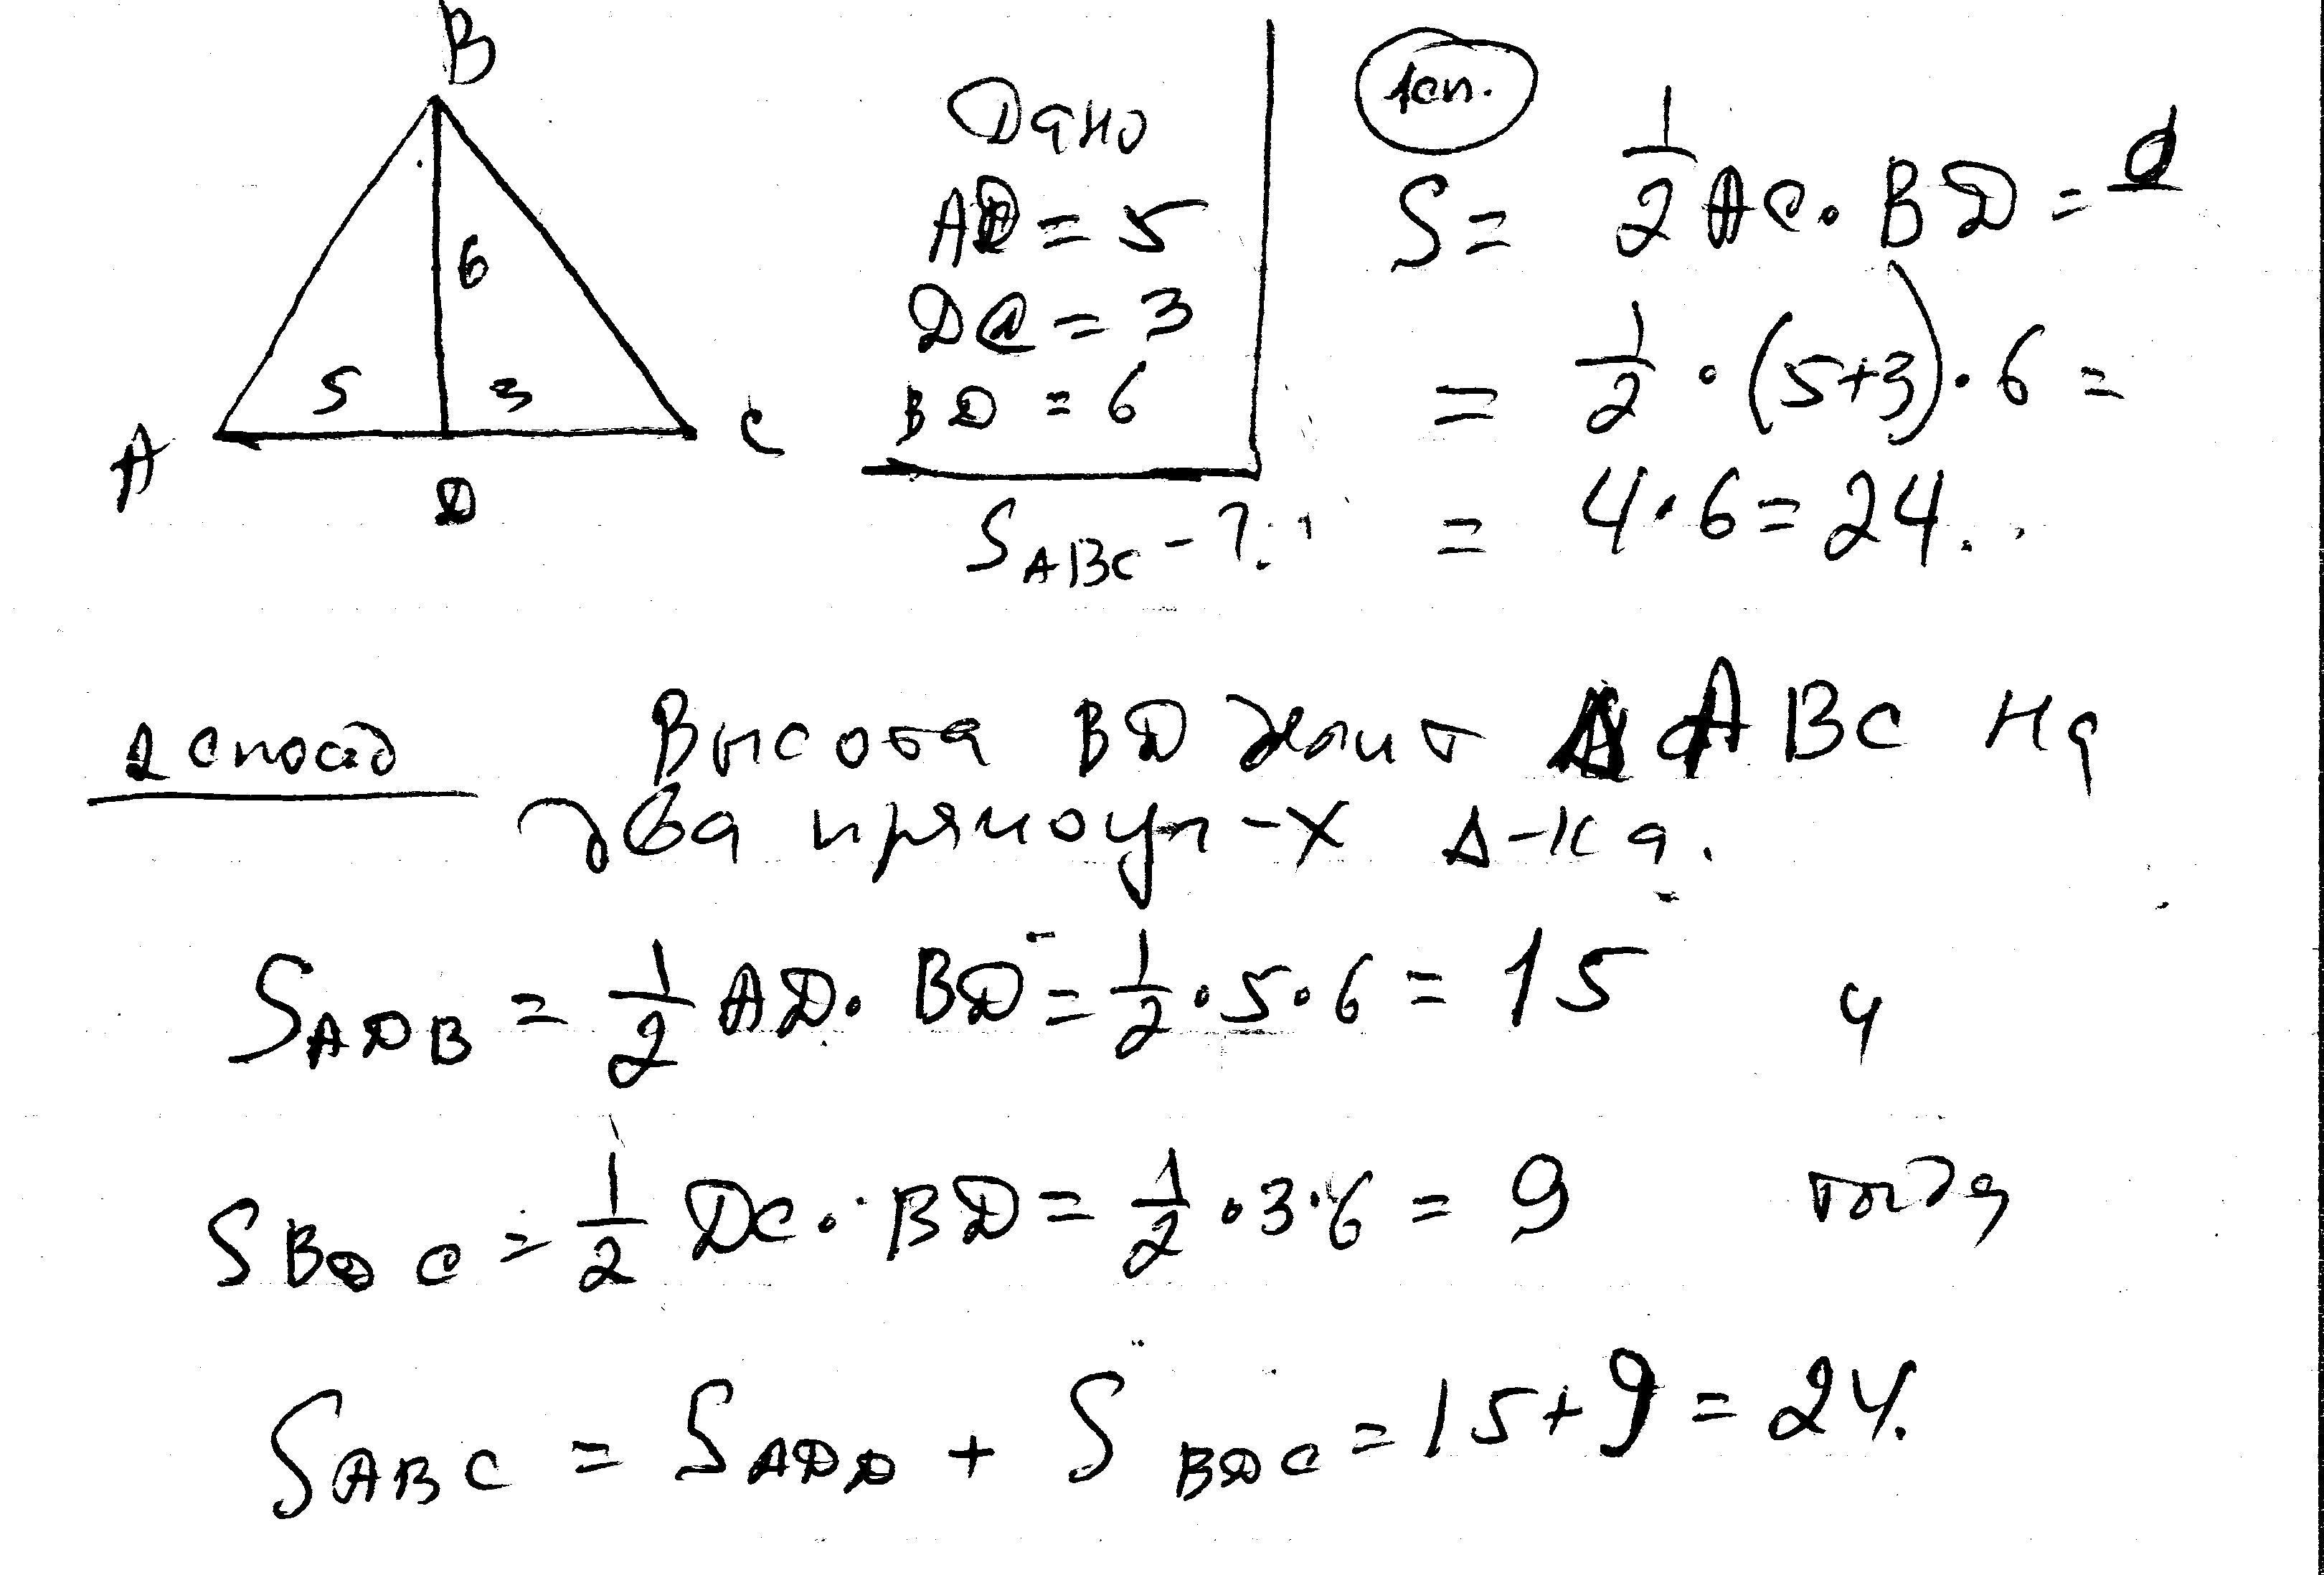 B
6
5
3
A
C
D
Дано
AD = 5
DC = 3
BD = 6
S ABC - ?
1сп.
S = 1/2 AC · BD =
= 1/2 · (5+3) · 6 =
= 4 · 6 = 24.
2 способ
Высота BD делит Δ ABC на
два прямоуг-х Δ-ка.
S ADB = 1/2 AD · BD = 1/2 · 5 · 6 = 15 и
S BDC = 1/2 DC · BD = 1/2 · 3 · 6 = 9 тогда
S ABC = S ADD + S BDC = 15 + 9 = 24.